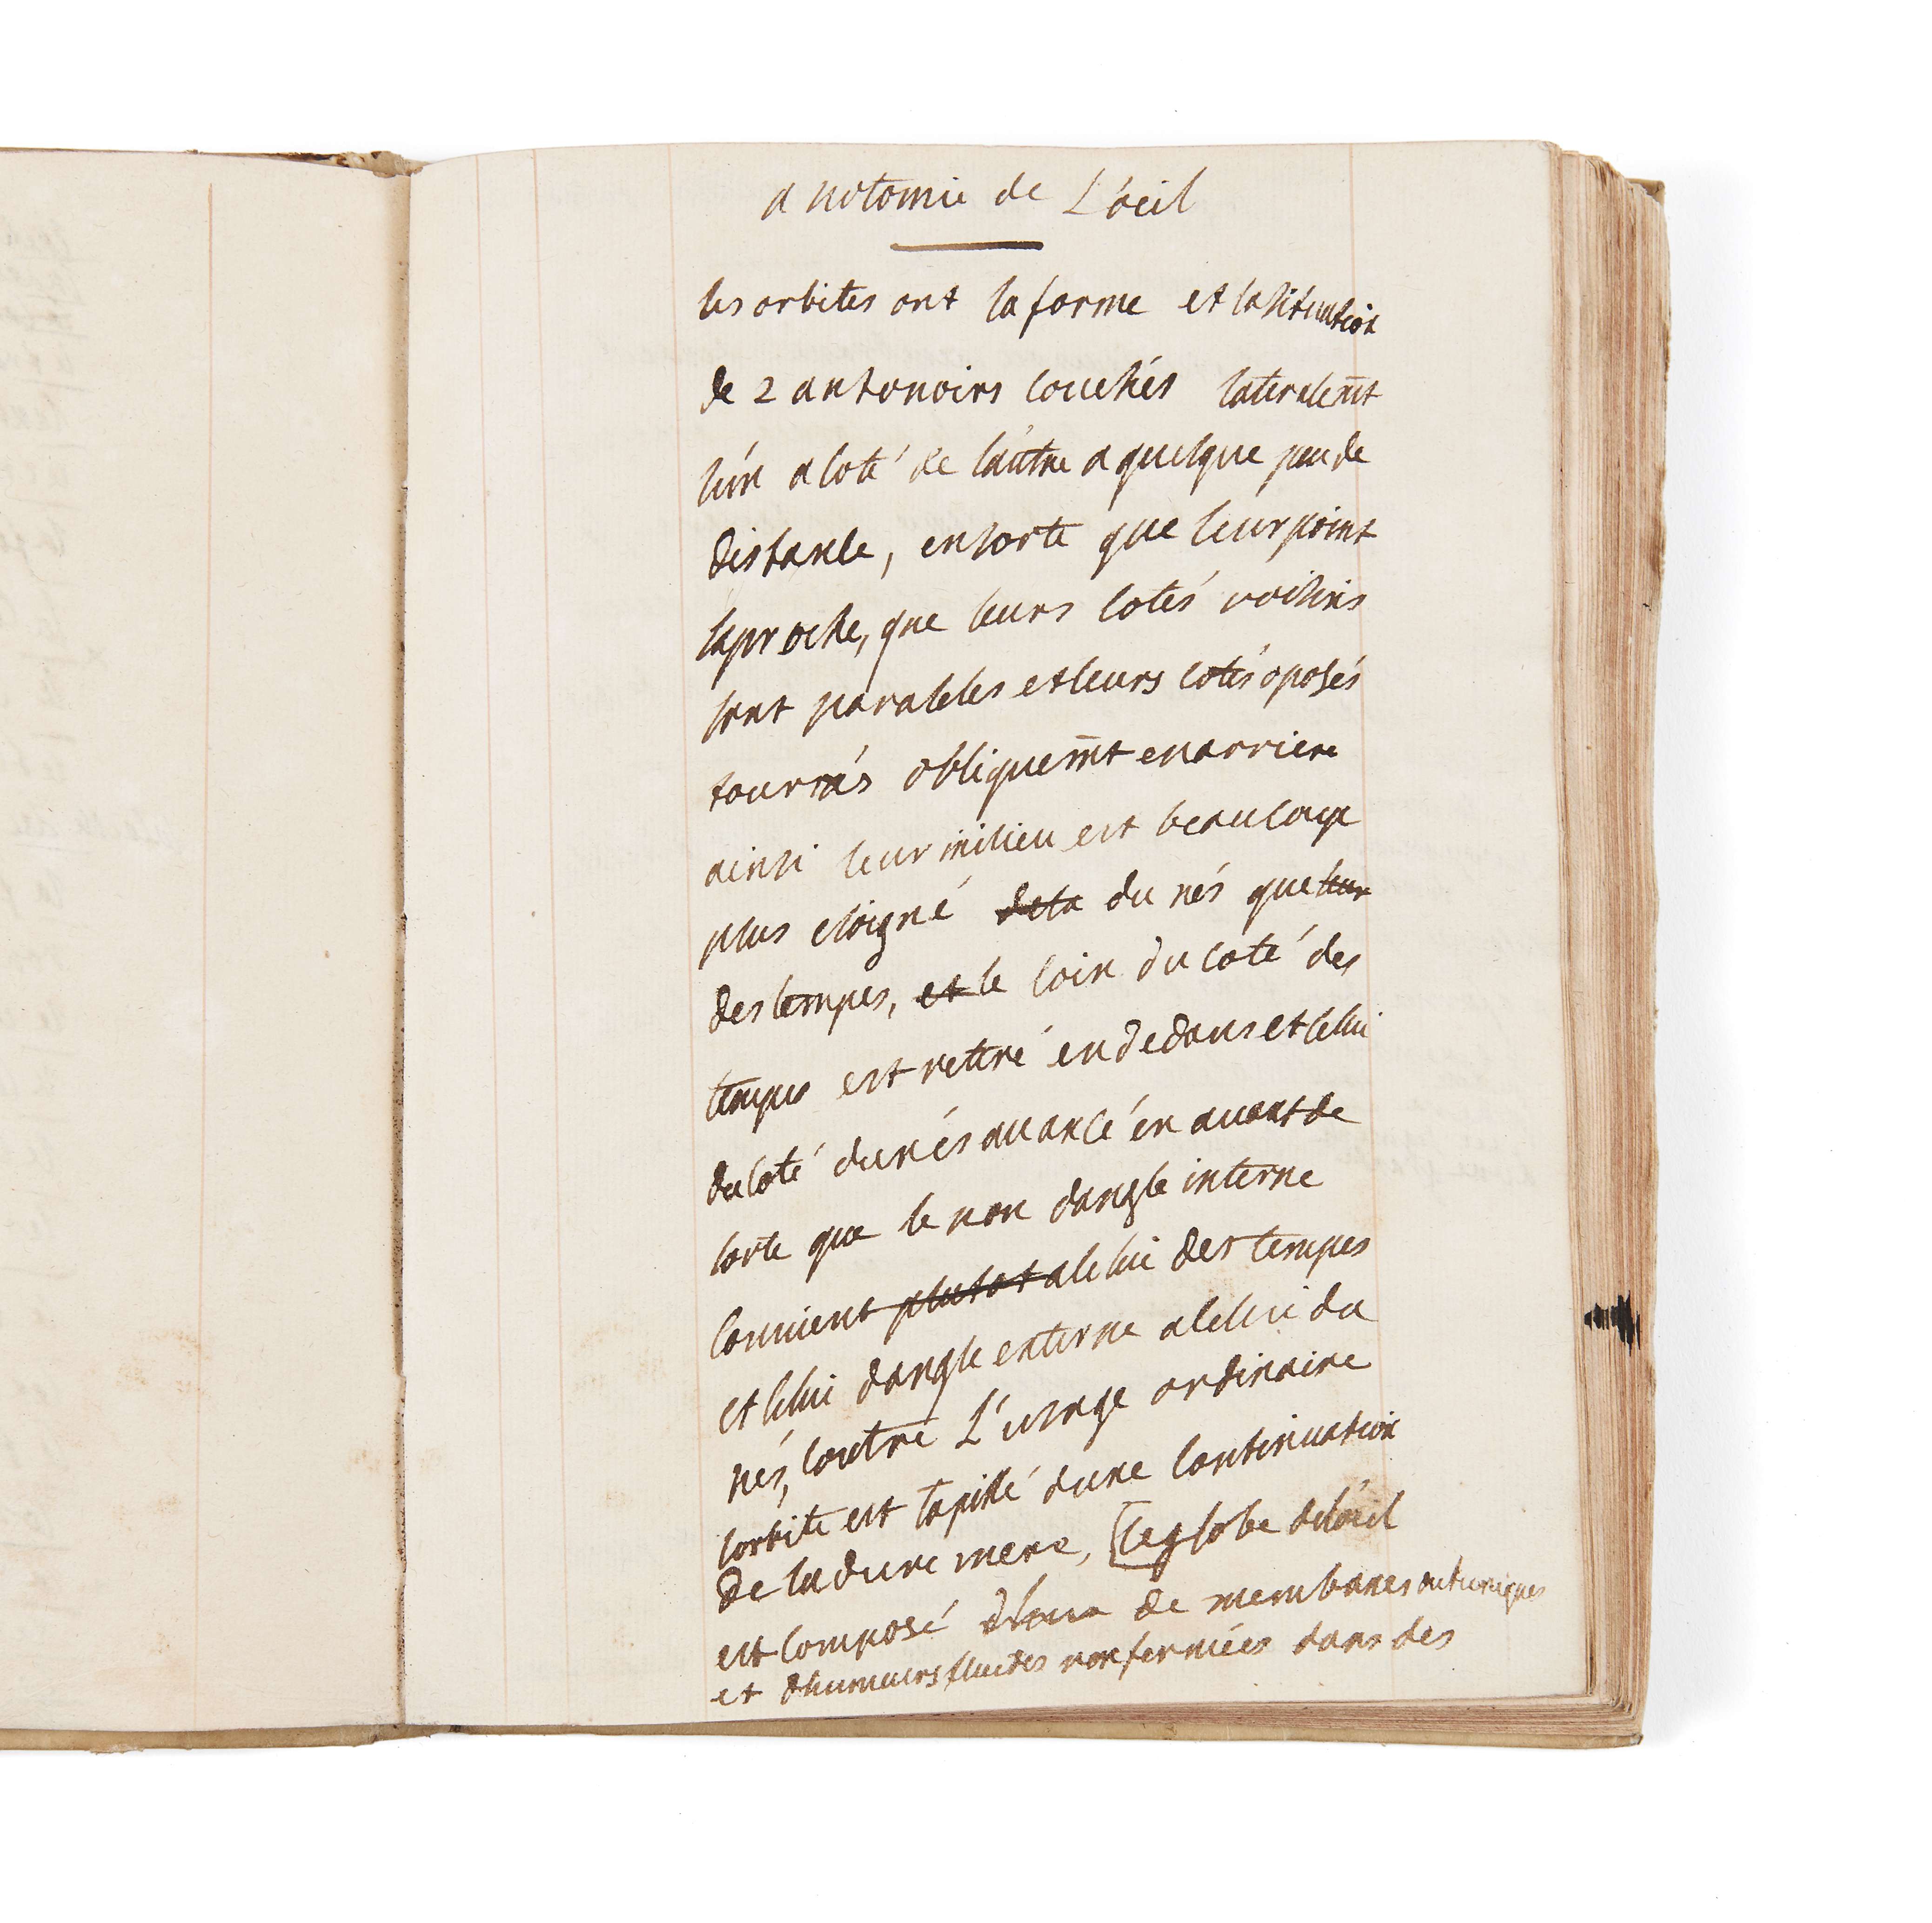 anatomie de L'œil
les orbites ont la forme et la situation
de 2 antonoirs couchés lateralem̄t
lún a coté de láutre a quelque peu de
distance, ensorte que leur point
saproche, que leurs cotés voisins
sont paralelles et leurs cotés oposés
tournés obliquem̄t en arriere
ainsi leur milieu est beaucoup
plus eloigné dela du nés que leur
des tempes, et le coin du coté des
tempes est retiré en dedans et celui
du coté du nés avancé en avant de
sorte que le nom dangle interne
convient plutot a celui des tempes
et celui dangle externe a celui du
nés, contre L'usage ordinaire
lorbite est tapissé dune continuation
de la dure mere, [le globe delóeil
est composé de membranes ou tuniques
et dhumeurs fluides renfermées dans des